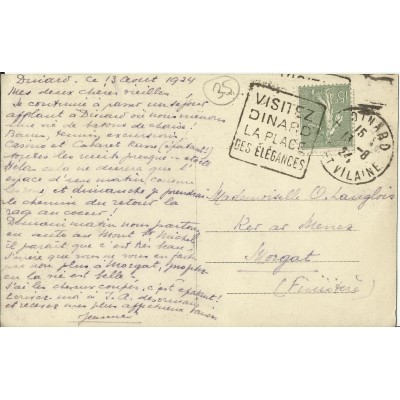 Dinard, Ce 13 Août 1924
Mes deux chères vieilles
Je continue à passer un séjour
affolant à Dinard où nous menons
une vie de
Bains, tennis, excursions,
Casino et Cabaret Russe (épatant)
toutes les nuits presque
Hélas cela ne durera que l'
espace d'un matin comme
et dimanche je prendrai
le chemin du retour la
rage au coeur!
Demain matin nous partons
en auto au Mont St Michel
il paraît que c'est très beau
que vous ne vous en faites
non plus à Morgat, profitez
en la vie est belle!
J'ai les cheveux coupés, c'est épatant!
Ecrivez moi à
et recevez mes plus affectueux baisers
25
VISITEZ
DINARD
LA PLAGE
DES ÉLÉGANCES
15c
DINARD
15
24
8
ET VILAINE
Mademoiselle O. Langlois
Ker ar Menez
Morgat
(Finistère)